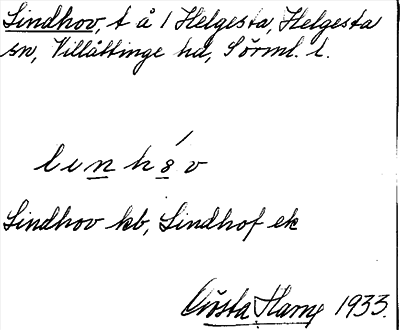 Lindhov, t å 1 Helgesta, Helgesta
sn, Villåttinge hd, Sörml. l.
linhóv
Lindhov kb, Lindhof ek
Gösta Harne 1933.